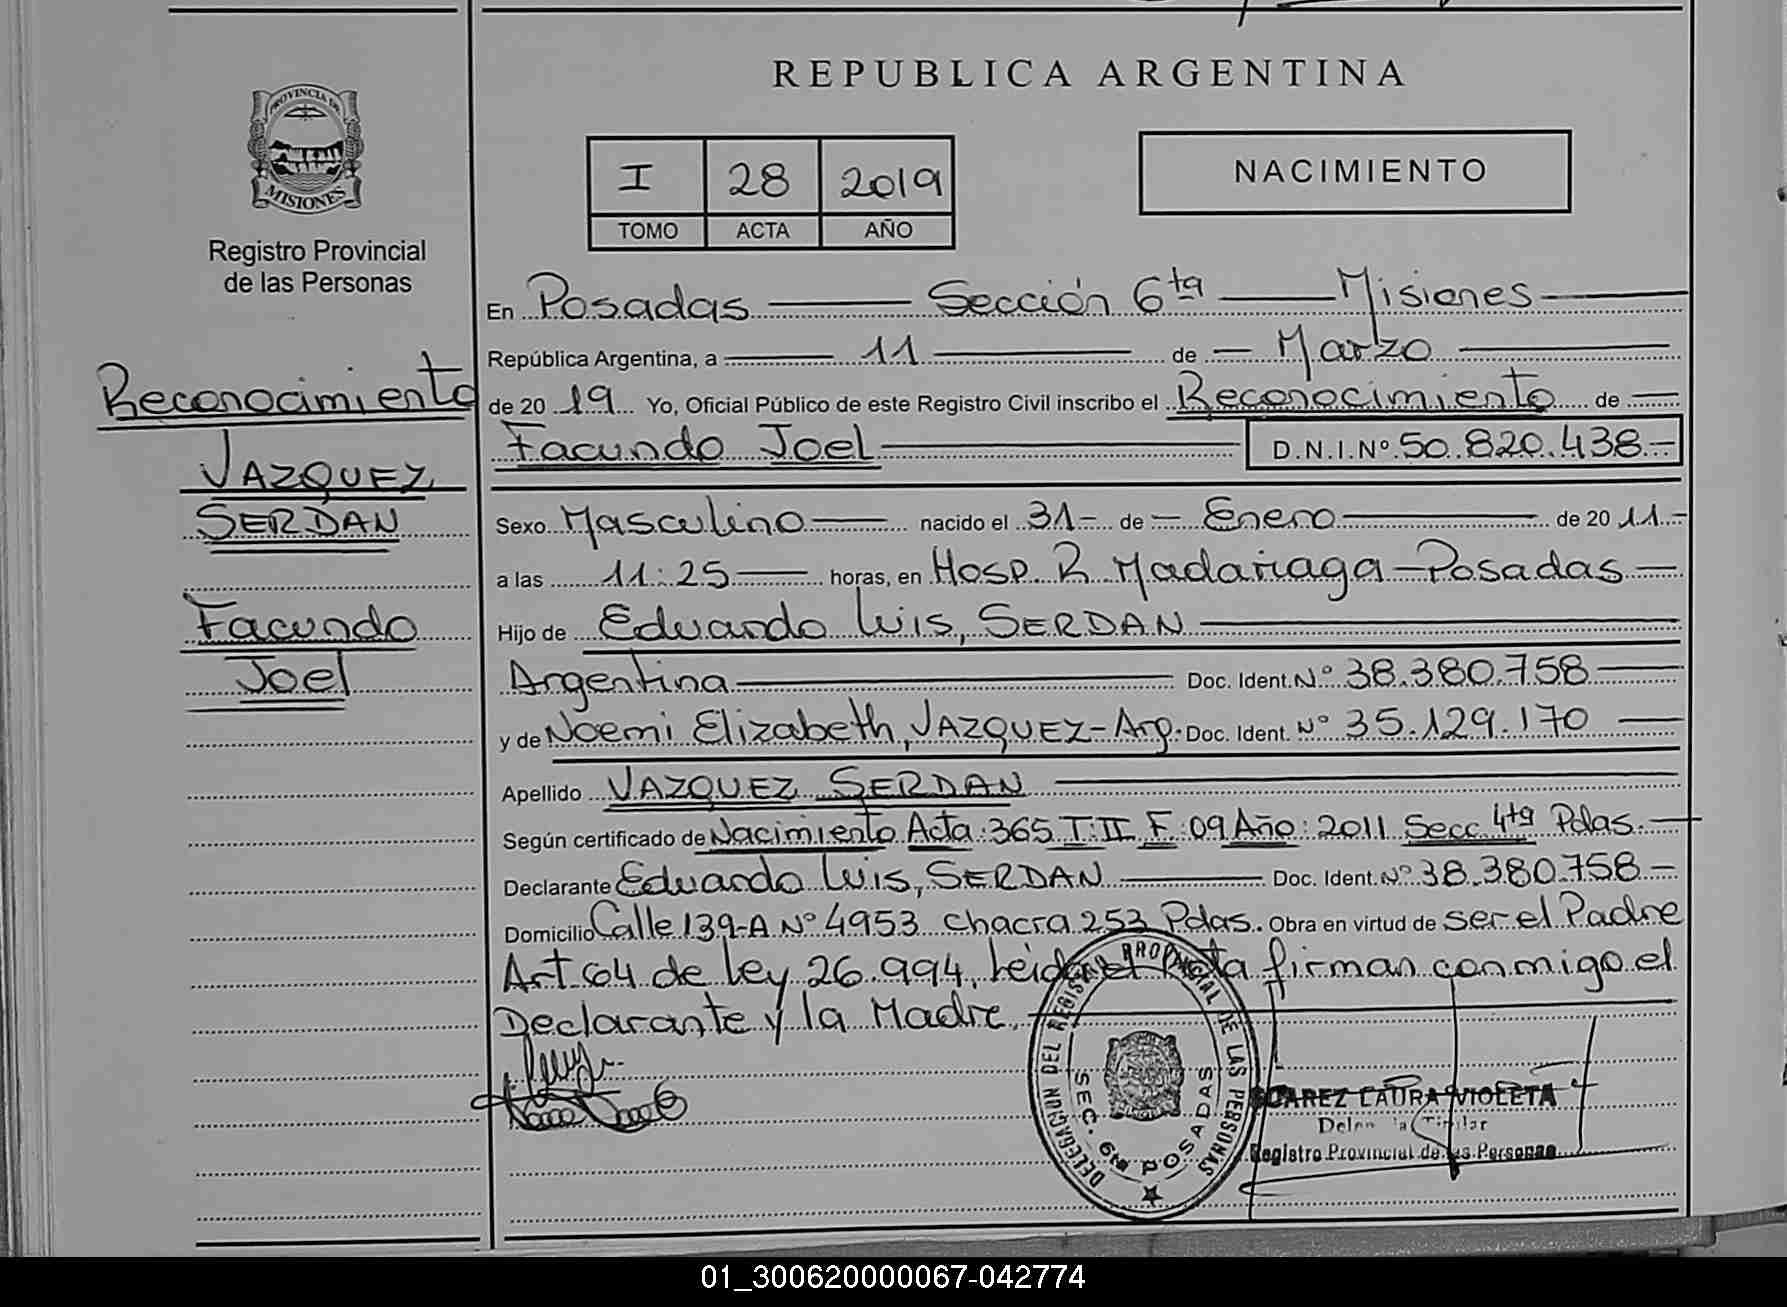 REPUBLICA ARGENTINA
PROVINCIA DE
MISIONES
Registro Provincial
de las Personas
I 28 2019
TOMO ACTA AÑO
NACIMIENTO
Reconocimiento
VAZQUEZ
SERDAN
Facundo
Joel
En Posadas Sección 6ta Misiones
República Argentina, a 11 de Marzo
de 2019 Yo, Oficial Público de este Registro Civil inscribo el Reconocimiento de
Facundo Joel D.N.I.Nº 50.820.438
Sexo Masculino nacido el 31 de Enero de 2011
a las 11:25 horas, en Hosp. R. Madariaga - Posadas
Hijo de Eduardo Luis, SERDAN
Argentina Doc. Ident. Nº 38.380.758
y de Noemi Elizabeth, VAZQUEZ - Arg. Doc. Ident. Nº 35.129.170
Apellido VAZQUEZ SERDAN
Según certificado de Nacimiento Acta: 365 T: II F: 09 Año: 2011 Secc 4ta Pdas.
Declarante Eduardo Luis, SERDAN Doc. Ident. Nº 38.380.758
Domicilio Calle 139-A Nº 4953 chacra 253 Pdas. Obra en virtud de ser el Padre
Art 64 de Ley 26.994, Leida el Acta firman conmigo el
Declarante y la Madre.
DELEGACION DEL REGISTRO PROVINCIAL DE LAS PERSONAS
SEC. 6ta POSADAS
SUAREZ LAURA VIOLETA
Registro Provincial de las Personas
01_300620000067-042774